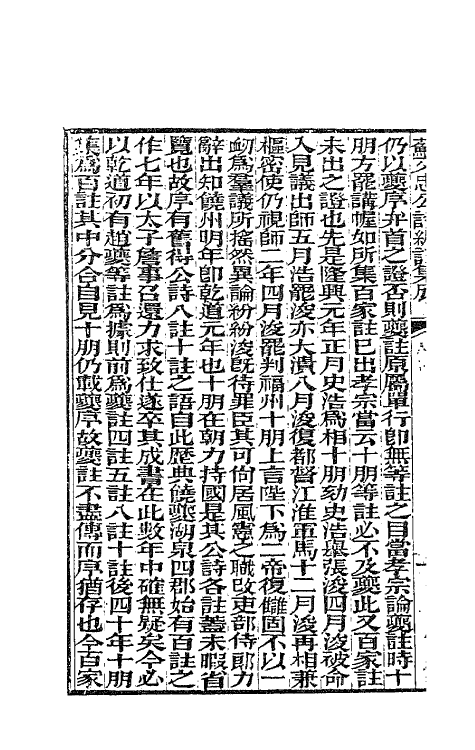 蘇文忠公詩編註集成
仍以夔序弁首之證否則夔註原屬單行卽無等註之目當孝宗論夔註時十
朋方罷講幄如所集百家註已出孝宗當云十朋等註必不及夔此又百家註
未出之證也先是隆興元年正月史浩爲相十朋劾史浩舉張浚四月浚被命
入見議出師五月浩罷浚亦大潰八月浚復都督江淮軍馬十二月浚再相兼
樞密使仍視師二年四月浚罷判福州十朋上言陛下爲二帝復讎固不以一
衂爲羣議所搖然異論紛紛浚旣待罪臣其可尙居風憲之職改吏部侍郞力
辭出知饒州明年卽乾道元年也十朋在朝力持國是其公詩各註蓋未暇省
覽也故序有舊得公詩八註十註之語自此歷典饒夔湖泉四郡始有百註之
作七年以太子詹事召還力求致仕遂卒其成書在此數年中確無疑矣今必
以乾道初有趙夔等註爲據則前爲夔註四註五註八註十註後四十年十朋
集爲百註其中分合自見十朋仍載夔序故夔註不盡傳而序猶存也今百家